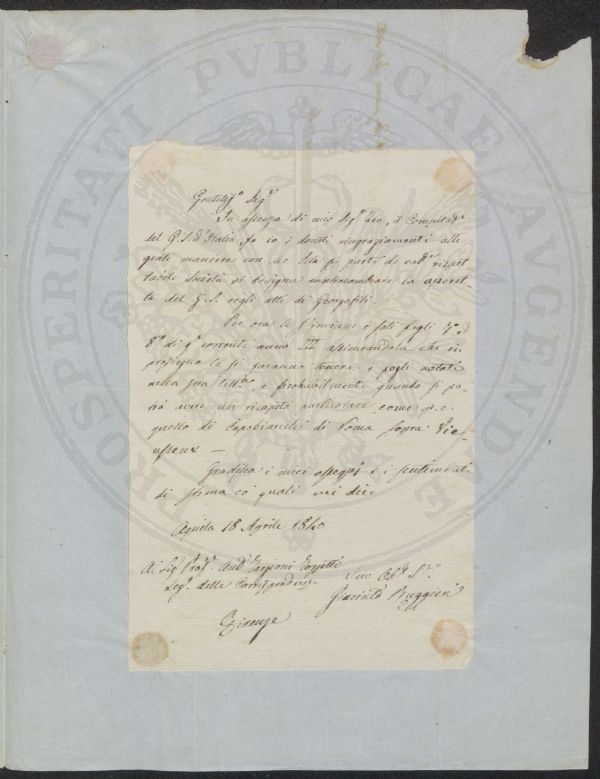 PROSPERITATI PVBLICAE AVGENDAE
Gentilis.º Sig.r
In assenza di mio Sig.r Zio, il Compilat.e
del G. S. d'Italia, fo io i dovuti ringraziamenti alle
grate maniere con che Ella p. parte di cod.a rispet
tabile Società si è degnata contracambiare la
del G. S. cogli atti di Georgofili.
Per ora le s'inviano i soli fogli 7º ed
8º di q.º corrente anno III assicurandola che in
proseguo le si faranno tenere i fogli notati
nella sua lett.a, e probabilmente quando si po
trà avere un ricapito particolare come p. e.
quello di Capobianchi di Roma sopra Vie-
usseux —
Gradisca i miei ossequi e i sentimenti
di stima co' quali mi dico
Aquila 18 Aprile 1840
Al Sig.r Prof.r
Seg.º delle Corrispondenze
Suo S.re
Giacinto Ruggieri
Firenze